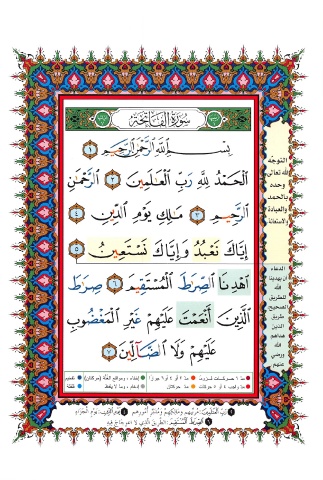 سورة الفاتحة
بِسْمِ ٱللَّهِ ٱلرَّحْمَٰنِ ٱلرَّحِيمِ ١
ٱلْحَمْدُ لِلَّهِ رَبِّ ٱلْعَٰلَمِينَ ٢ ٱلرَّحْمَٰنِ
ٱلرَّحِيمِ ٣ مَٰلِكِ يَوْمِ ٱلدِّينِ ٤
إِيَّاكَ نَعْبُدُ وَإِيَّاكَ نَسْتَعِينُ ٥
ٱهْدِنَا ٱلصِّرَٰطَ ٱلْمُسْتَقِيمَ ٦ صِرَٰطَ
ٱلَّذِينَ أَنْعَمْتَ عَلَيْهِمْ غَيْرِ ٱلْمَغْضُوبِ
عَلَيْهِمْ وَلَا ٱلضَّآلِّينَ ٧
التوجّه
لله تعالى
وحده
بالحمد
والعبادة
والاستعانة
الدعاء
أن يهدينا
الله
للطريق
الصحيح
طريق
الذين
هداهم
الله
ورضي
عنهم